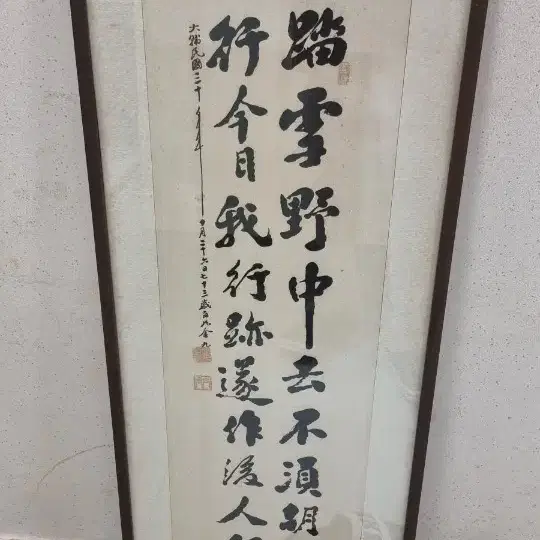 踏雪野中去不須胡
行今日我行跡遂作後人
大韓民國三十年十月二十六日七十三歲白凡金九